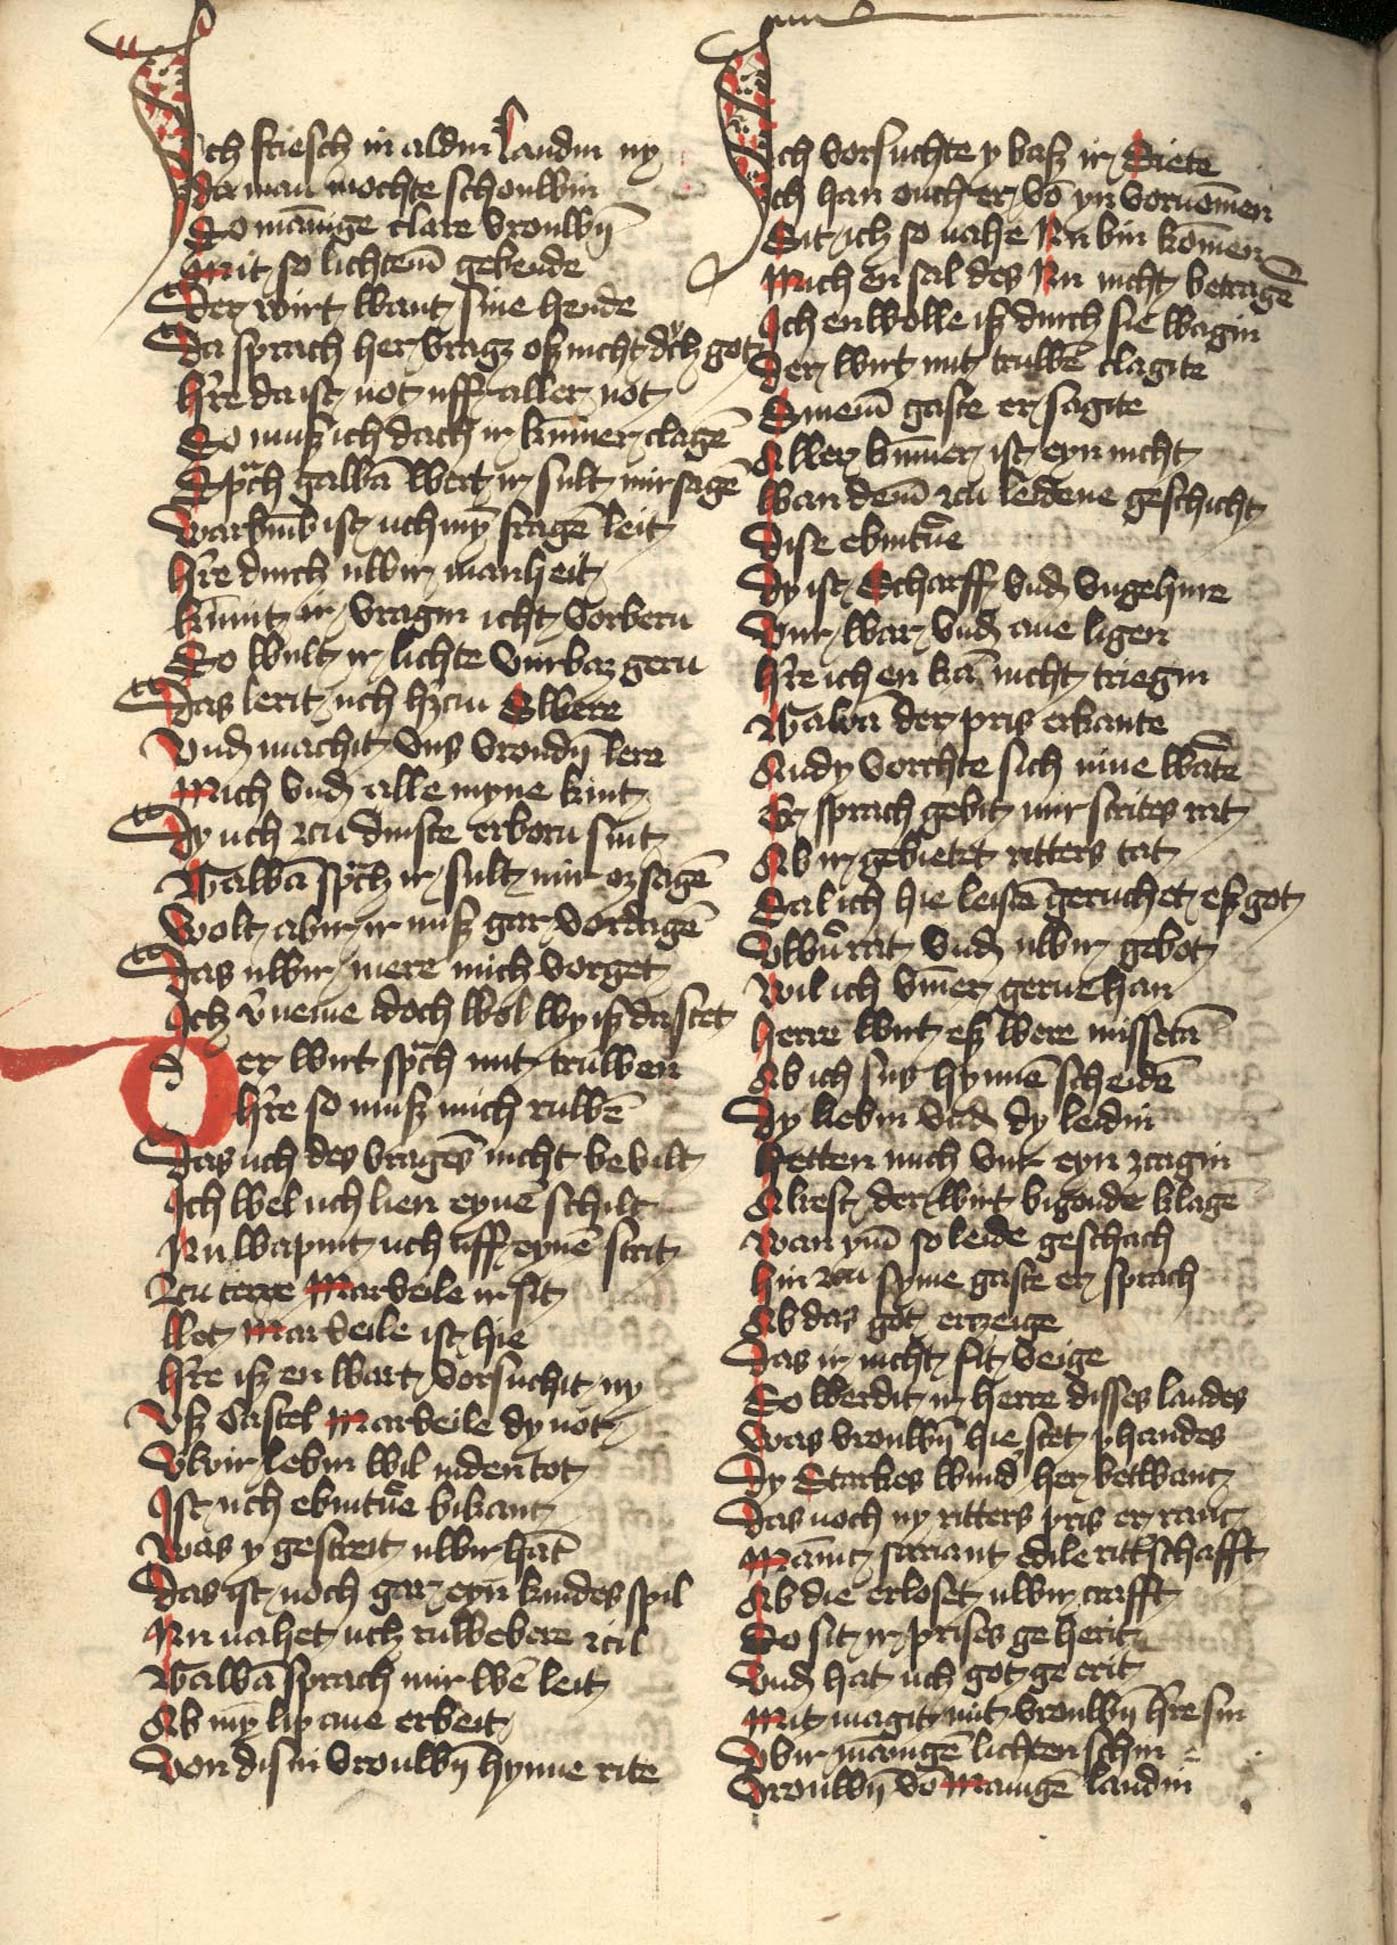 Ich friesch in aldin landin ny
Da man mochte schouwin
So mānige clare vrouwȳ
Mit so lichtem̄ gebende
Der wirt want sine hende
Da sprach her vragz osz nicht dch got
h're da ist not uff aller not
So musz ich dach ir kum̄er clagē
Spch gawā wert ir sult mir sagē
Warum̄b ist uch myn̄ fragē leit
h're durch uwir manheit
kun̄nt ir vragin icht vorbern
So wult ir lichte vurbaz gern
Das lerit uch h'zcin swere
Vnd machit vns vroudȳ lere
Mich vnd alle myne kint
Dy uch zcu dinste erborn sint
Gawā spch ir sult mir oz sagē
Wolt abir ir musz gar vordagē
Das uwir mere mich vorget
Ich v'neme idoch wol wy isz da stet
Der wirt spch mit truwen
h're so musz mich ruwē
Das uch des vragēs nicht bevilt
Ich wel uch lien eynē schilt
Nu wapint uch uff eynē strit
Zcu terre Marveile ir sit
Llet Marveile ist hie
h're isz en wart vorsuchit ny
Vsz Castel Marveile dy not
Vwir lebin wil in den tot
Ist uch ebintu'e bikant
Was y gestreit uwir hāt
Das ist noch gar eyn kindes spil
Nu nahet uch ruwebere zcil
Gawā sprach mir wē leit
Ab my̅ lip ane erbeit
Von disin vrouwȳ hynne rite
Ich vorsuchte y basz ir Siete
Ich han ouch er vō yn vornōmen
Sit ich so nahe Nu bin kōmen
Mich en sal des Nu nicht betragē
Ich en wolle isz durch sie wagin
Der wirt mit truwē clagite
Sinem̄ gaste er sagite
Aller kum̄er ist eyn nicht
Wan dem̄ zcu lidene geschicht
Dise ebintu'e
Dy ist Scharff vnd vngehure
Vur war vnd ane ligen
h're ich en kā nicht triegin
Gawā der pris erkante
An dy vorchte sich nine wāte
Er sprach gebit mir strites rat
Ab ir gebietet ritters tat
Sal ich hie leistē geruchet esz got
Vwu'n rat vnd uwir gebot
Wil ich vm̄er gerne han
Herre wirt esz were missetā
Ab ich sus hynnē scheidē
Dy liebin vnd dy leidin
Hetten mich vur eyn zcagin
Alrest der wirt bigonde klagē
Wan ym̄ so leide geschach
Hin zcu syme gaste er sprach
Ab das got erzeige
Das ir nicht sit veige
So werdit ir herre disses landes
Was vrouwȳ hie stet phandes
Dy Starkes wund her betwanc
Das noch ny ritters pris er ranc
Mānic sariant edile rittschafft
Ab die erloset uwir crafft
So sit ir prises geherit
Vnd hat uch got ge erit
Mit magit mit vrouwȳ h're sin
Vbir mānigē lichten schin
Vrouwȳ vō Manigē landin